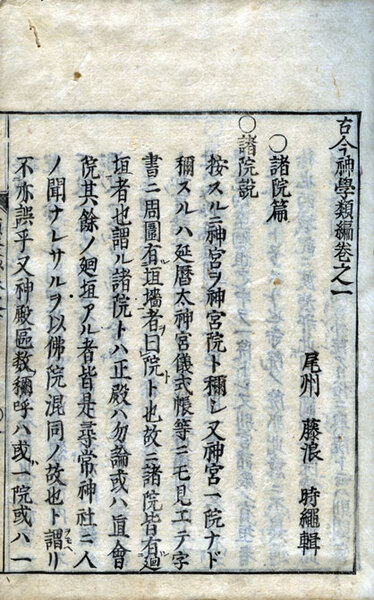 古今神學類編卷之一
尾州 藤浪 時繩輯
○諸院篇
○諸院説
按スルニ神宮ヲ神宮院ト稱シ又神宮一院ナド
稱スルハ延暦太神宮儀式帳等ニモ見エテ字
書ニ周圍有垣墻者曰院ト也故ニ諸院皆有
垣者也謂ル諸院トハ正殿ハ勿論或ハ直會
院其餘ノ廻垣アル者皆是尋常神社ニ人
ノ聞ナレサルヲ以佛院混同ノ故也ト謂リ
不亦誤乎又神殿區数稱呼ハ或ハ一院或ハ一